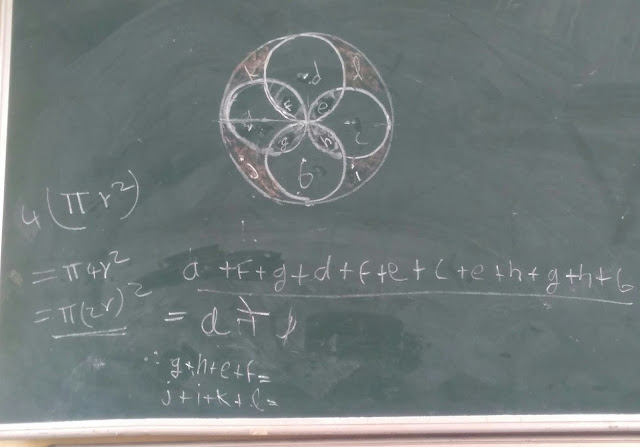 k d l
f e
a c
g h
j b i
4(πr²)
= π4r²
= π(2r)²
a +f+g+d+f+e+c+e+h+g+h+b
= a +
∴ g+h+e+f=
j+i+k+l=